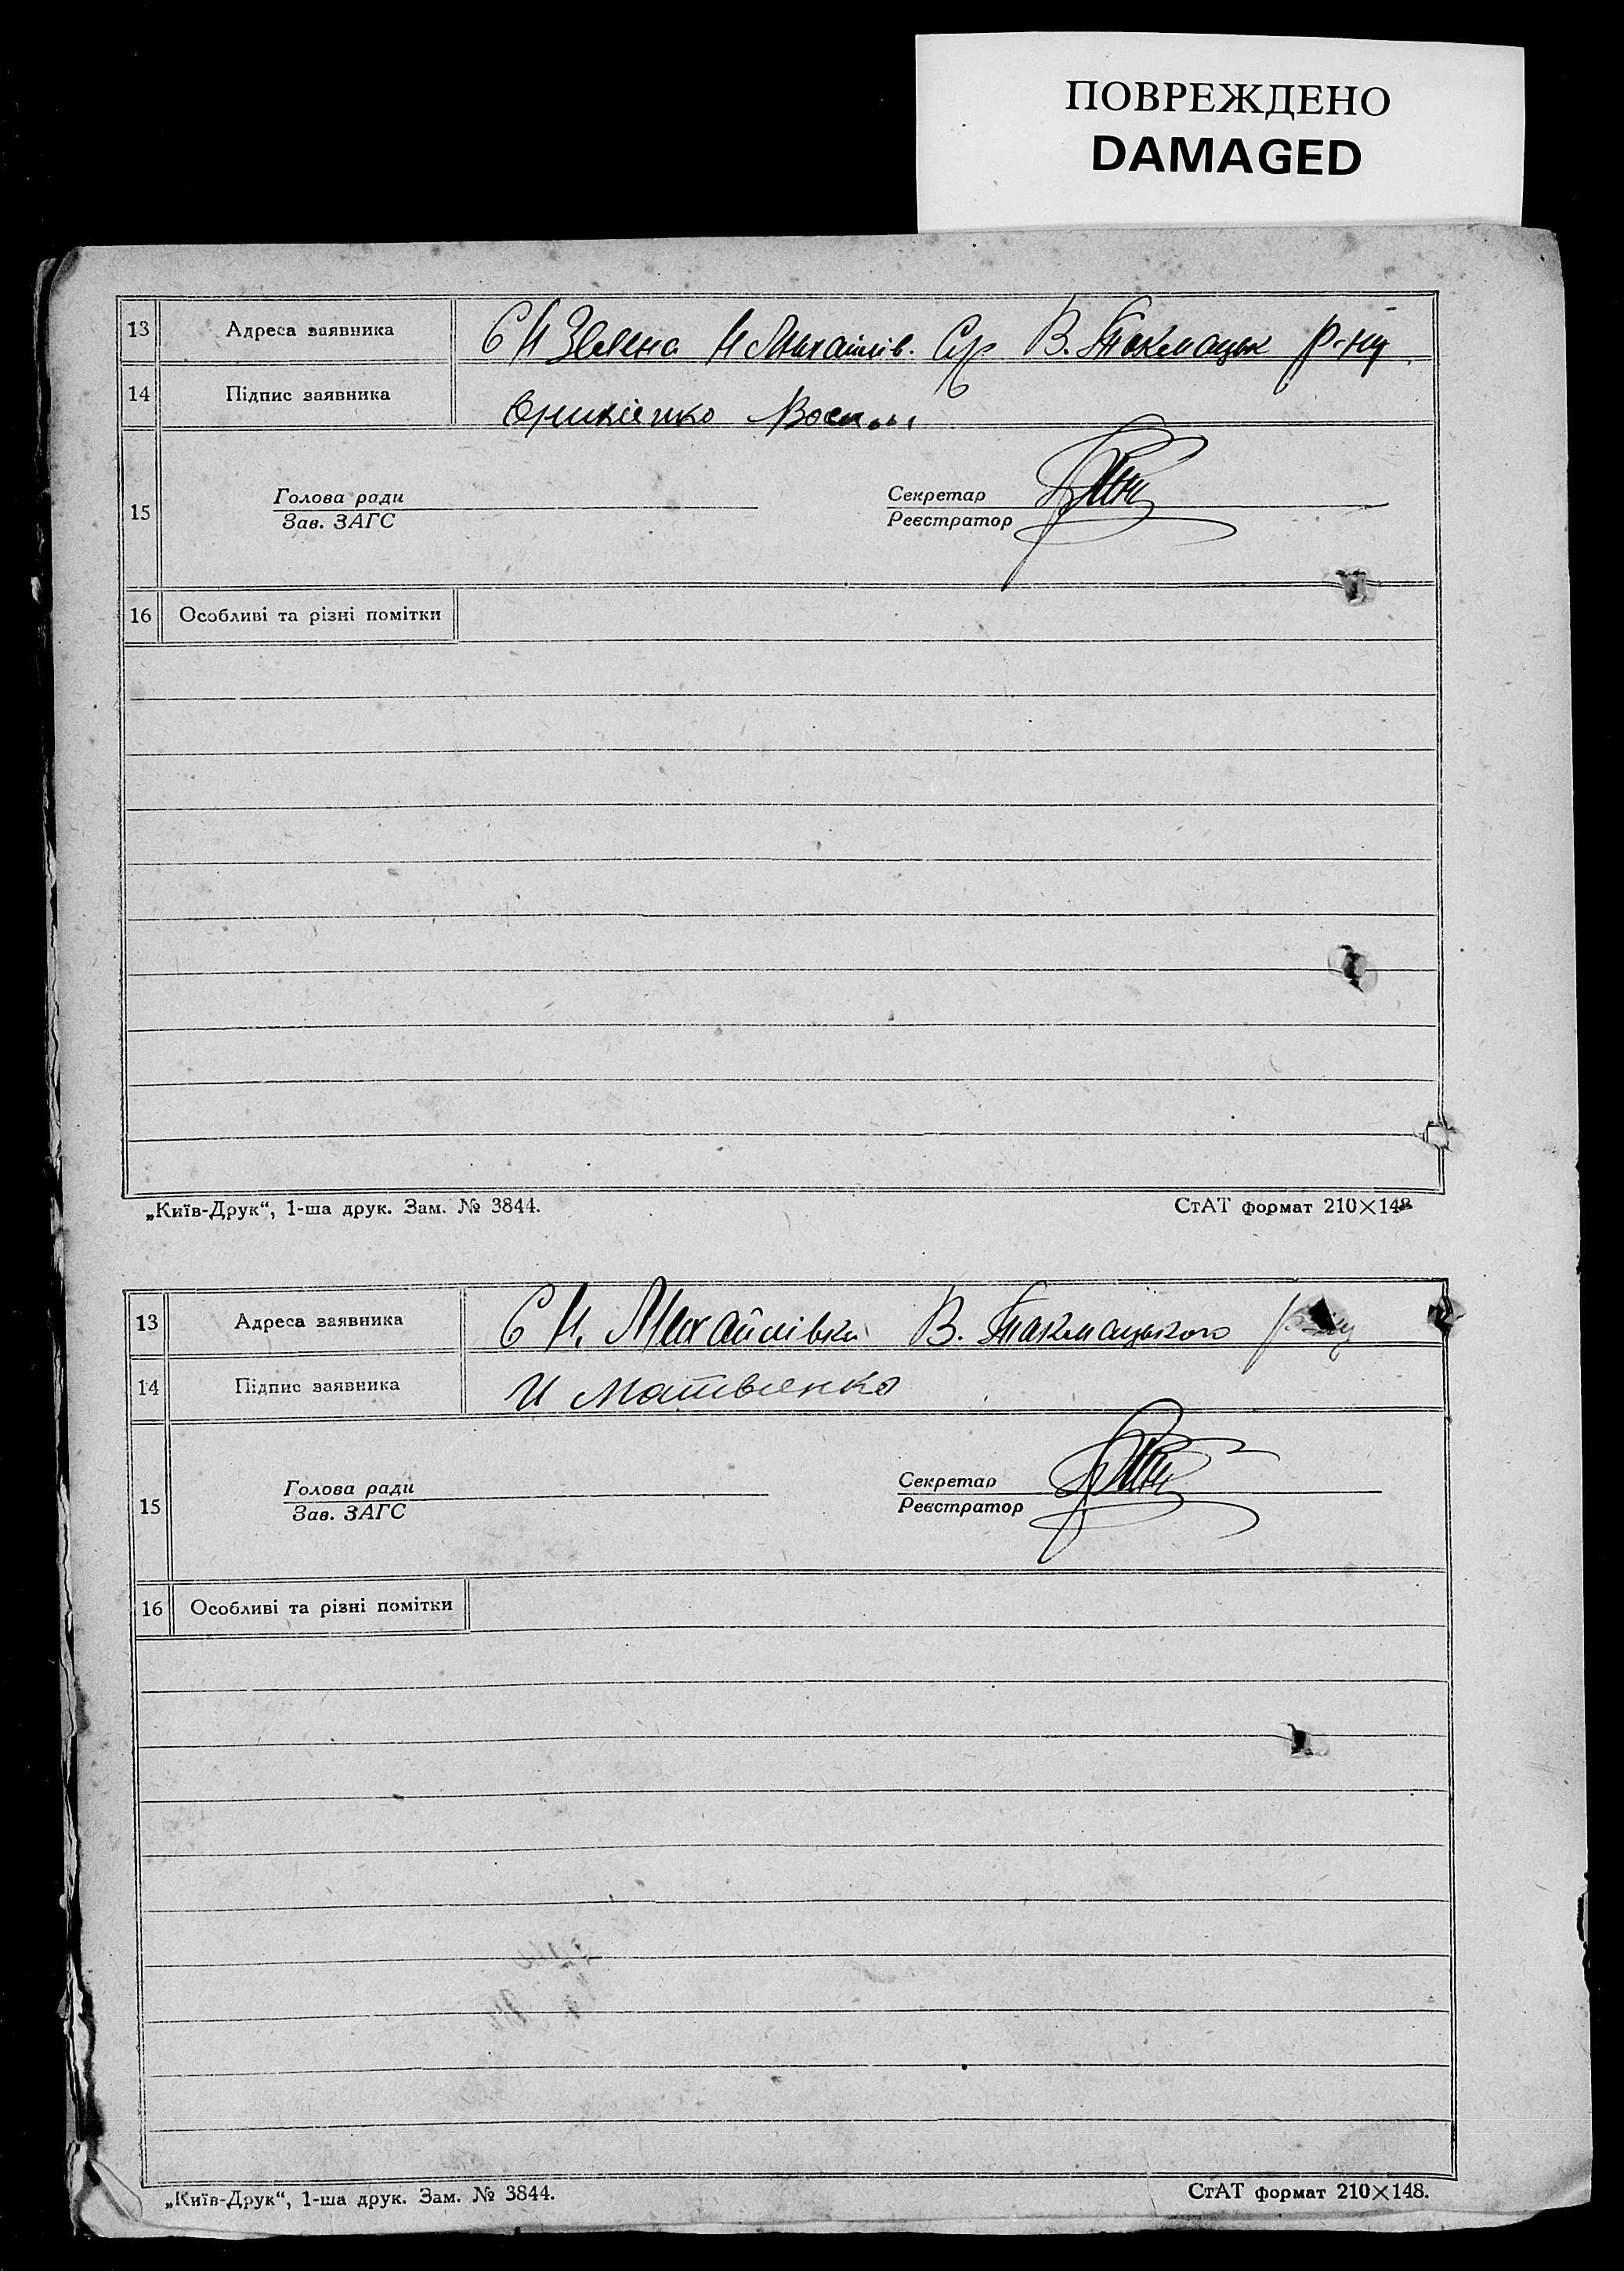 ПОВРЕЖДЕНО
DAMAGED
13 Адреса заявника С Н Зелена Н Михайлів. С/р В. Токмацьк р-ну
14 Підпис заявника
15 Голова ради Секретар
Зав. ЗАГС Реєстратор
16 Особливі та різні помітки
„Київ-Друк“, 1-ша друк. Зам. № 3844. СтАТ формат 210×148
13 Адреса заявника С Н. Михайлівки В. Токмацького р-ну
14 Підпис заявника И Матвиенко
15 Голова ради Секретар
Зав. ЗАГС Реєстратор
16 Особливі та різні помітки
„Київ-Друк“, 1-ша друк. Зам. № 3844. СтАТ формат 210×148.